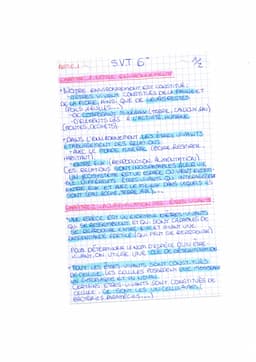 S.V.T 6e
1/2
• NOTRE ENVIRONNEMENT EST CONSTITUÉ :
- D'ÊTRES VIVANTS CONSTITUÉS DE LA FAUNE ET
DE LA FLORE, AINSI QUE DE LEURS RESTES
(POILS, FEUILLES...)
- DE COMPOSANT MINÉRAL (TERRE, CAILLOUX, EAU)
- D'ÉLÉMENTS LIÉS À L'ACTIVITÉ HUMAINE
(ROUTES, DÉCHETS)
• DANS L'ENVIRONNEMENT, LES ÊTRES VIVANTS
ÉTABLISSENT DES RELATIONS
- AVEC LE MONDE MINÉRAL (BOIRE, RESPIRER,
HABITAT)
- ENTRE EUX (REPRODUCTION, ALIMENTATION)
CES RELATIONS SONT INDISPENSABLES POUR VIE
UN ÉCOSYSTÈME EST UN ESPACE OÙ VIENT
DIFFÉRENTS ÊTRES VIVANTS QUI INTERAGISSENT
ENTRE EUX ET AVEC LE MILIEU DANS LEQUEL ILS
SONT (EAU, ROCHE, TERRE, AIR...)
• UNE ESPÈCE EST UN ENSEMBLE D'ÊTRES VIVANTS
QUI SE RESSEMBLENT ET QUI SONT CAPABLES DE
SE REPRODUIRE ENTRE EUX ET AYANT UNE
DESCENDANCE FERTILE (QUI PEUT SE REPRODUIRE)
POUR DÉTERMINER LE NOM D'ESPÈCE D'UN ÊTRE
VIVANT, ON UTILISE UNE CLÉ DE DÉTERMINATION
• TOUT LES ÊTRES VIVANTS SONT CONSTITUÉS
DE CELLULES, LES CELLULES POSSÈDENT UNE MEMBRANE
UN CYTOPLASME ET UN NOYAU.
CERTAINS ÊTRES VIVANTS SONT CONSTITUÉS DE
CELLULE : CE SONT LES UNICELLULAIRES
BACTÉRIES, PARAMÉCIES...)